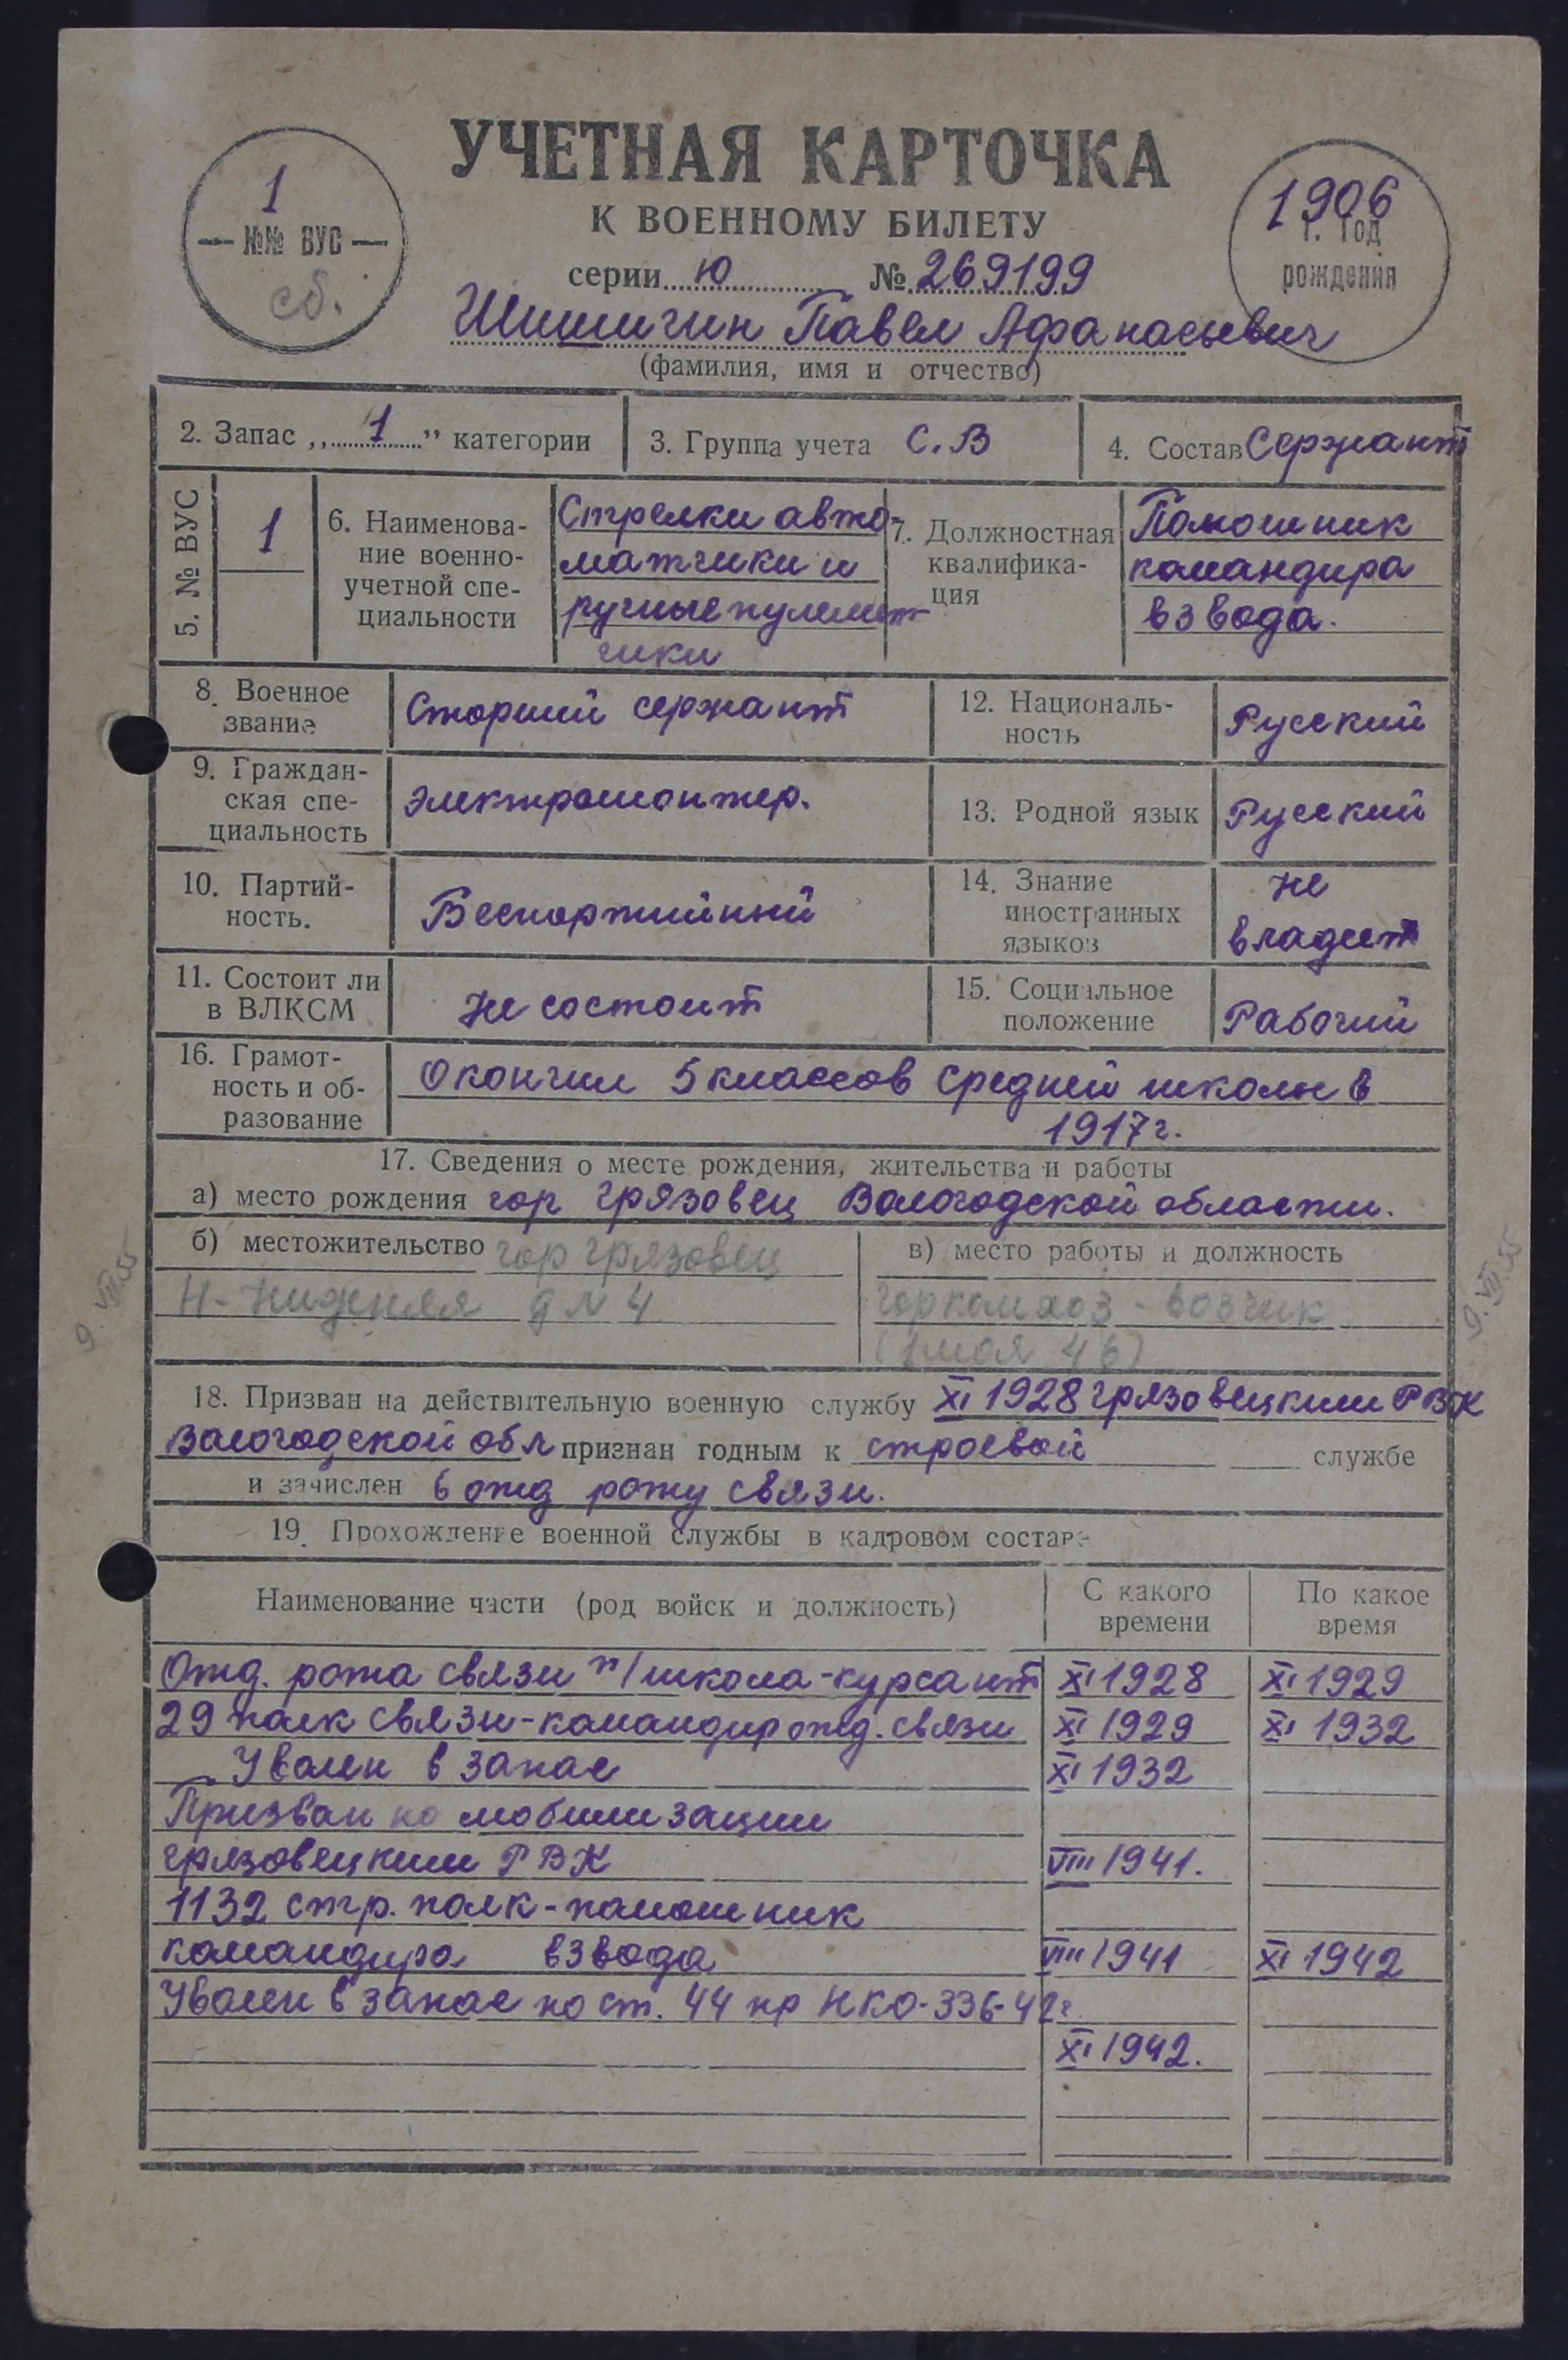 УЧЕТНАЯ КАРТОЧКА
К ВОЕННОМУ БИЛЕТУ
серии Ю № 269199
1
№№ ВУС
сб.
1906
1. Год
рождения
Шишигин Павел Афанасьевич
(фамилия, имя и отчество)
2. Запас „1” категории
3. Группа учета С.В
4. Состав Сержант
5. № ВУС
1
6. Наименова-
ние военно-
учетной спе-
циальности
Стрелки авто-
матчики и
ручные пулемет
чики
7. Должностная
квалифика-
ция
Помошник
командира
взвода.
8. Военное
звание
Старший сержант
12. Националь-
ность
Русский
9. Граждан-
ская спе-
циальность
Электромонтер.
13. Родной язык
Русский
10. Партий-
ность.
Беспартийный
14. Знание
иностранных
языков
Не
владеет
11. Состоит ли
в ВЛКСМ
Не состоит
15. Социальное
положение
Рабочий
16. Грамот-
ность и об-
разование
Окончил 5 классов средней школы в
1917г.
17. Сведения о месте рождения, жительства и работы
а) место рождения гор Грязовец Вологодской области.
б) местожительство гор Грязовец
д N 4
в) место работы и должность
Горкомхоз - возчик
(1 мая 46)
9. VIII.55
9. VIII.55
18. Призван на действительную военную службу XI 1928 Грязовецким РВК
Вологодской обл признан годным к строевой службе
и зачислен в отд роту связи.
19. Прохождение военной службы в кадровом составе
Наименование части (род войск и должность)
С какого
времени
По какое
время
Отд. рота связи п/школа-курсант XI 1928 XI 1929
29 полк связи-командир отд. связи XI 1929 XI 1932
Уволен в запас XI 1932
Призван по мобилизации
Грязовецким РВК VIII 1941.
1132 стр. полк-помошник
командира взвода VIII 1941 XI 1942
Уволен в запас по ст. 44 пр НКО-336-42г.
XI 1942.